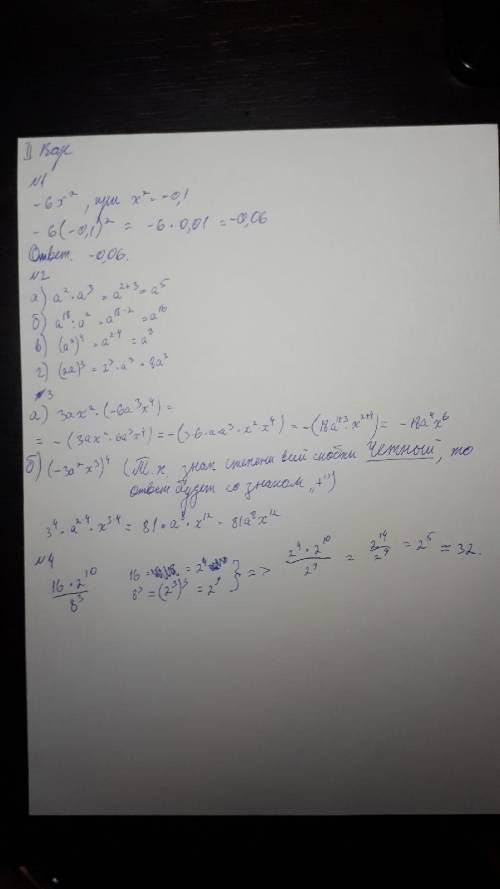 II Вар
№1
-6x², при x²=-0,1
-6(-0,1)² = -6·0,01=-0,06
Ответ. -0,06.
№2
а) a²·a³=a²⁺³=a⁵
б) a¹⁸:a²=a¹⁸⁻²=a¹⁶
в) (a²)⁴=a²·⁴=a⁸
г) (2a)³=2³·a³=8a³
№3
а) 3ax²·(-6a³x⁴)=
=-(3ax²·6a³x⁴)=-(3·6·a·a³·x²x⁴)=-(18a¹⁺³·x²⁺⁴)=-18a⁴x⁶
б) (-3a²x³)⁴ (Т.к знак степени всей скобки Четный, то
ответ будет со знаком „+")
3⁴·a²·⁴·x³·⁴=81·a⁸·x¹²=81a⁸x¹²
№4
16·2¹⁰/8³ 16=2⁴ 8³=(2³)³=2⁹ } => 2⁴·2¹⁰/2⁹ = 2¹⁴/2⁹ =2⁵=32.